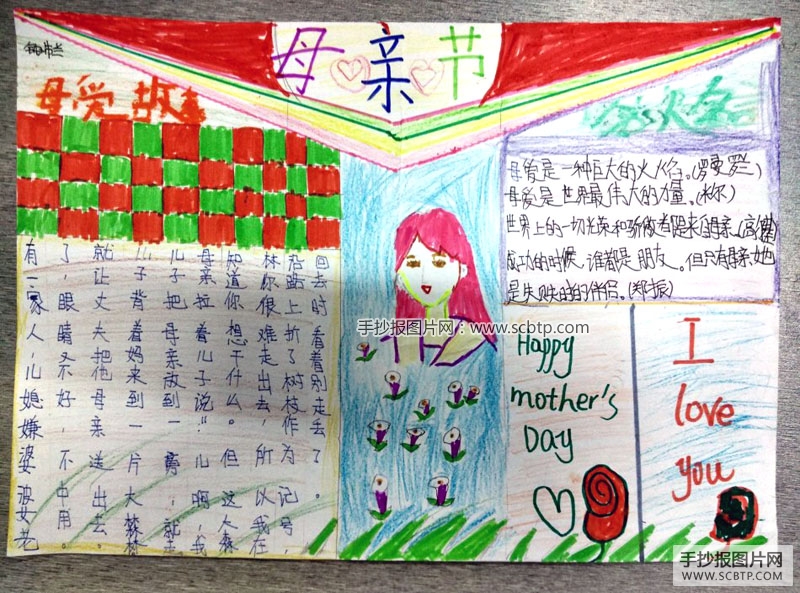 母亲节
母爱故事
有一家人，儿媳嫌婆婆老
了，眼睛不好，不中用。
就让丈夫把他母亲送出去。
儿子背着妈来到一片大森林
儿子把母亲放到一旁，就走
母亲拉着儿子说："儿啊，我
知道你想干什么。但这个森
林你很难走出去，所以我在
沿路上折了树枝作为记号，
回去时看着别走丢了。
母爱是一种巨大的火焰。(罗曼罗兰)
母爱是世界最伟大的力量。(米尔)
世界上的一切光荣和骄傲者跟来自母亲(高)
成功的时候，谁都是朋友。但只有母亲她
是失败时的伴侣。(郑振)
Happy
mother's
Day
I
love
you
手抄报图片网：www.scbtp.com
手抄报图片网
WWW.SCBTP.COM